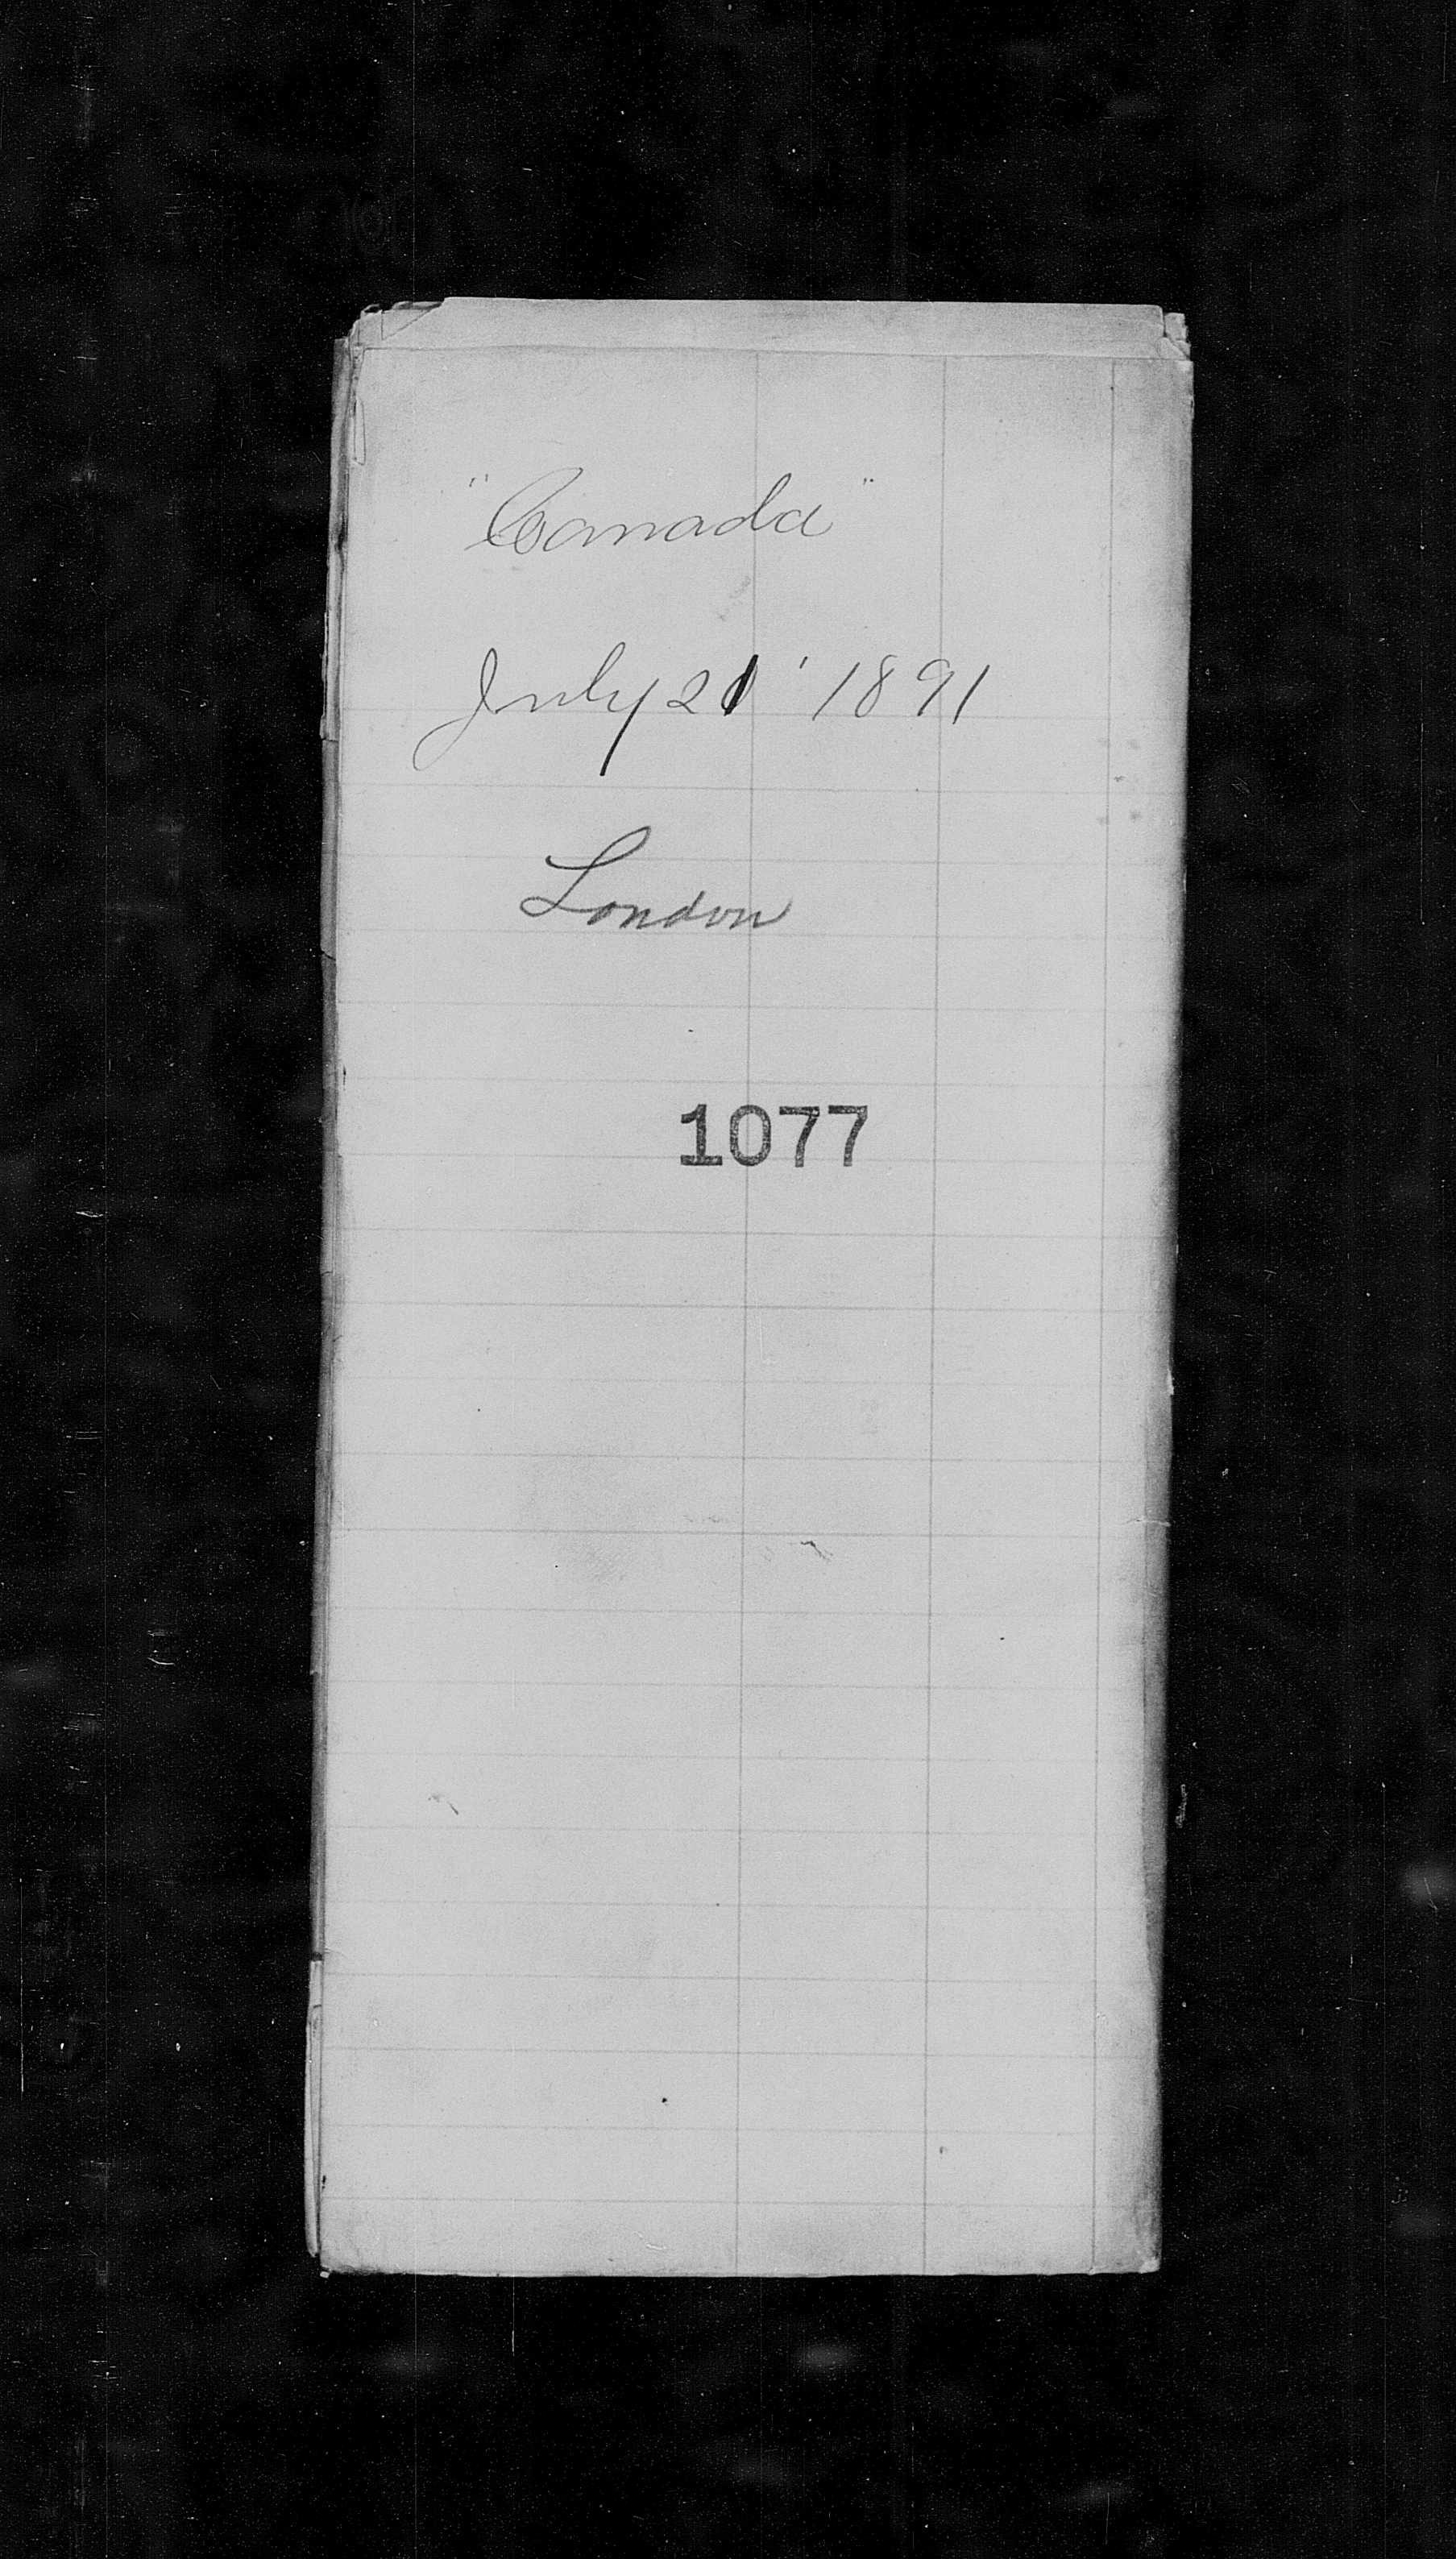 "Canada"
July 21' 1891
London
1077